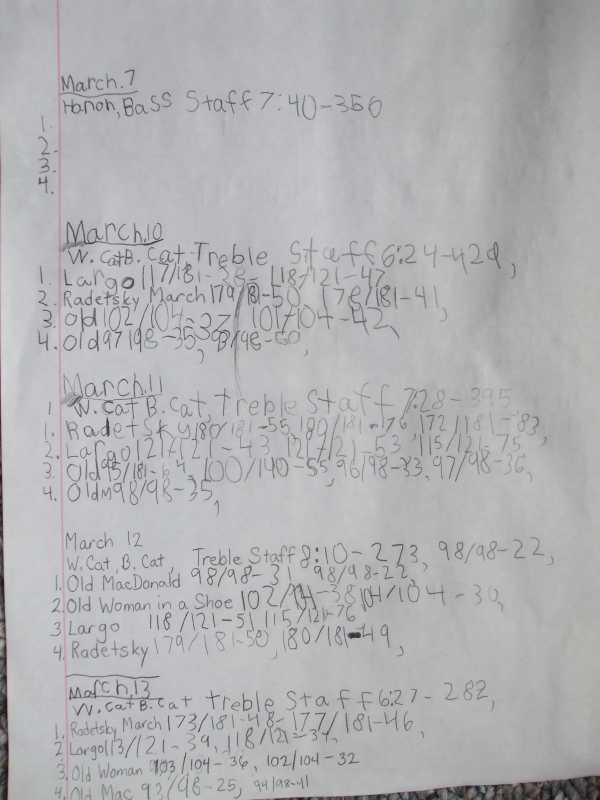 March.7
Hanon, Bass Staff 7:40-350
1.
2.
3.
4.
March.10
W. Cat B. Cat Treble Staff 6:24-429,
1. Largo 117/181-38- 118/121-47
2. Radetsky March 179/181-50, 178/181-41,
3. Old 102/104-37, 101/104-42,
4. Old 97/98-35, 98-50,
March.11
1 W. Cat B. Cat, Treble Staff 7:28-395
1. Radetsky 180/181-55, 180/181-176, 172/181-83,
2. Largo 121/121-43, 121/121-53, 115/121-75
3. Old 100/140-55, 96/98-33, 97/98-36,
4. Old M 98/98-35,
March 12
W. Cat, B. Cat, Treble Staff 8:10-273, 98/98-22,
1. Old MacDonald 98/98-31 98/98-22,
2. Old Woman in a Shoe 102/104-38 104/104-30,
3. Largo 118/121-51, 115/121-76
4. Radetsky 179/181-50, 180/181-49,
March.13
W. Cat B. Cat Treble Staff 6:27-282,
1. Radetsky March 173/181-48- 177/181-46,
2 Largo 113/121-39, 118/121-37,
3. Old Woman 103/104-36, 102/104-32
4. Old Mac 93/98-25, 94/98-41